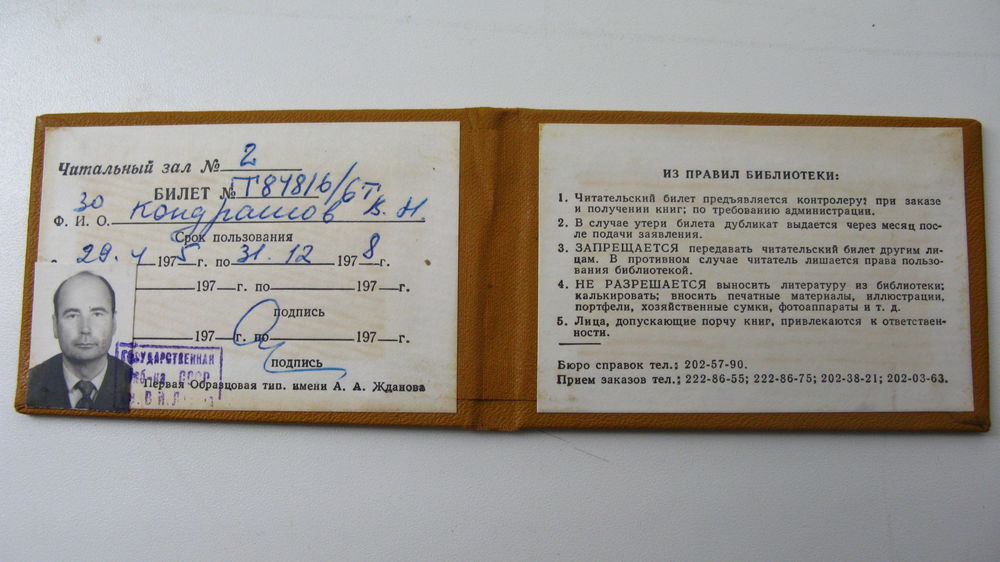 Читальный зал № 2
БИЛЕТ № Т84816/6т
30
Ф. И. О. Кондрашов В. Н.
Срок пользования
29. 4 1975 г. по 31. 12 1978 г.
197 г. по 197 г.
подпись
197 г. по 197 г.
подпись
ГОСУДАРСТВЕННАЯ
СССР
Первая Образцовая тип. имени А. А. Жданова
ИЗ ПРАВИЛ БИБЛИОТЕКИ:
1. Читательский билет предъявляется контролеру; при заказе
и получении книг; по требованию администрации.
2. В случае утери билета дубликат выдается через месяц пос-
ле подачи заявления.
3. ЗАПРЕЩАЕТСЯ передавать читательский билет другим ли-
цам. В противном случае читатель лишается права пользо-
вания библиотекой.
4. НЕ РАЗРЕШАЕТСЯ выносить литературу из библиотеки;
калькировать; вносить печатные материалы, иллюстрации,
портфели, хозяйственные сумки, фотоаппараты и т. д.
5. Лица, допускающие порчу книг, привлекаются к ответствен-
ности.
Бюро справок тел.: 202-57-90.
Прием заказов тел.: 222-86-55; 222-86-75; 202-38-21; 202-03-63.